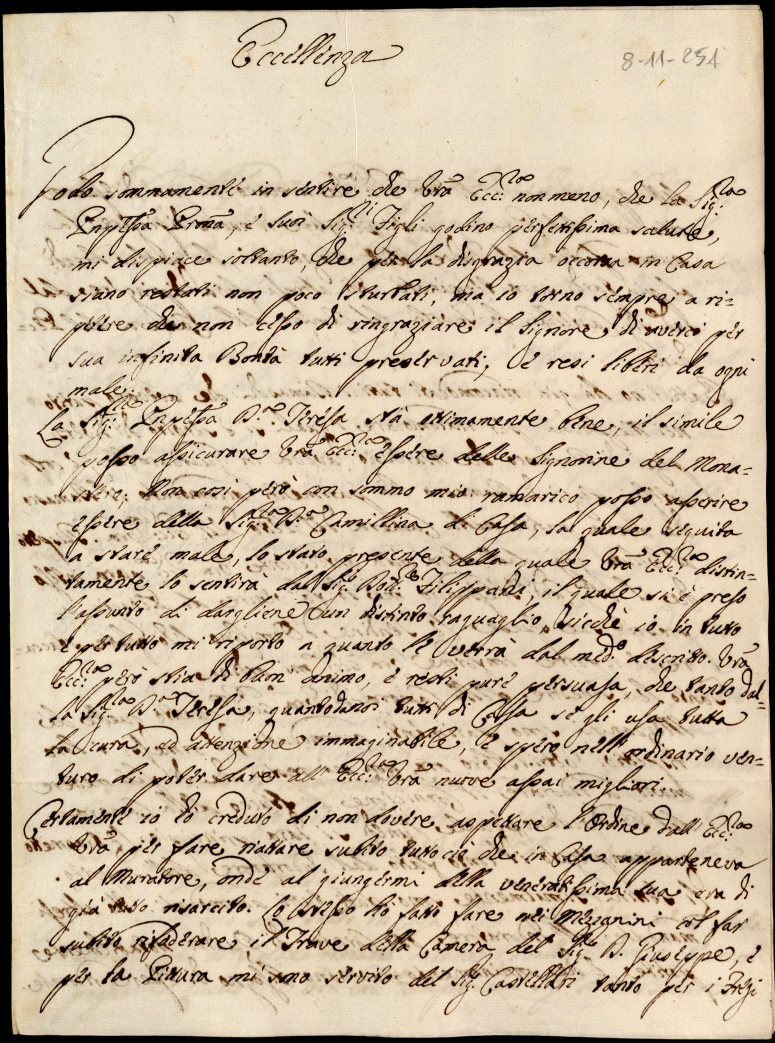 Eccellenza
8-11-251
Godo sommamente in sentire che Vrã Ecc:za non meno, che la Sig:ra
Pnpessa Prona, e suoi Sig:ri Figli godino perfettissima salute,
mi dispiace soltanto, che per la disgrazia occorsa in Casa
siano restati non poco sturbati, ma io torno sempre a ri=
petere che non cesso di ringraziare il Signore di averci per
sua infinita Bontà tutti preservati, e resi liberi da ogni
male.
La Sig:ra Pnpessa D.a Teresa stà ottimamente bene, il simile
posso assicurare Vrã Ecc:za essere delle Signorine del Mona=
stere; Non così però con sommo mio ramarico posso asserire
essere della Sig:ra D.a Camillina di Casa, la quale seguita
a stare male, lo stato presente della quale Vrã Ecc:za distin=
tamente lo sentirà dal Sig:r Dott:re Filippani, il quale si è preso
l'assunto di dargliene un distinto raguaglio, sicchè io in tutto
e per tutto mi riporto a quanto le verrà dal med:o descritto. Vrã
Ecc:za però stia di buon animo, e resti pure persuasa, che tanto dal=
la Sig:ra D.a Teresa, quanto da noi tutti di Casa se gli usa tutta
la cura, ed attenzione immaginabile, e spero nell'ordinario ven=
turo di poter dare all'Ecc:za Vrã nuove assai migliori.
Certamente io ho creduto di non dovere aspettare l'Ordine dall'Ecc:za
Vrã per fare nattare subito tutto ciò che in Casa apparteneva
al Muratore, onde al giungermi della veneratissima sua era di
già tutto risarcito. Lo stesso hò fatto fare nei Mezzanini col far
subito rifoderare il Trave della Camera del Sig:r D. Giuseppe, e
per la Pittura mi sono servito del Sig:r Castellari tanto per i Fregi